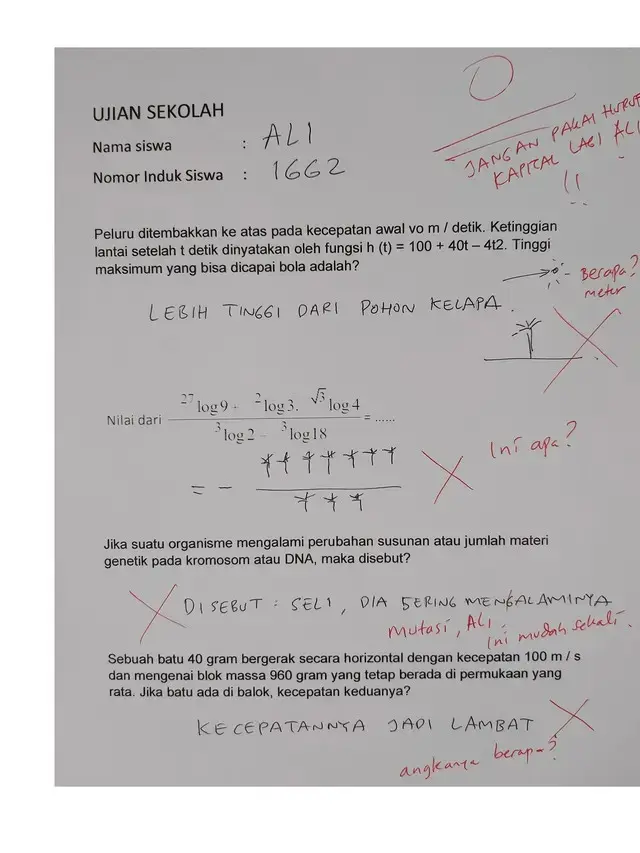 O
UJIAN SEKOLAH
Nama siswa : ALI
JANGAN PAKAI HURUF
KAPITAL LAGI ALI
!!
Nomor Induk Siswa : 1662
Peluru ditembakkan ke atas pada kecepatan awal vo m / detik. Ketinggian
lantai setelah t detik dinyatakan oleh fungsi h (t) = 100 + 40t – 4t2. Tinggi
maksimum yang bisa dicapai bola adalah?
Berapa?
meter
LEBIH TINGGI DARI POHON KELAPA.
27 log 9 - 2 log 3. √3 log 4
Nilai dari = ......
3 log 2 - 3 log 18
Ini apa?
= -
Jika suatu organisme mengalami perubahan susunan atau jumlah materi
genetik pada kromosom atau DNA, maka disebut?
DISEBUT : SELI, DIA SERING MENGALAMINYA
Mutasi, ALI.
Ini mudah sekali.
Sebuah batu 40 gram bergerak secara horizontal dengan kecepatan 100 m / s
dan mengenai blok massa 960 gram yang tetap berada di permukaan yang
rata. Jika batu ada di balok, kecepatan keduanya?
KECEPATANNYA JADI LAMBAT
angkanya berapa?